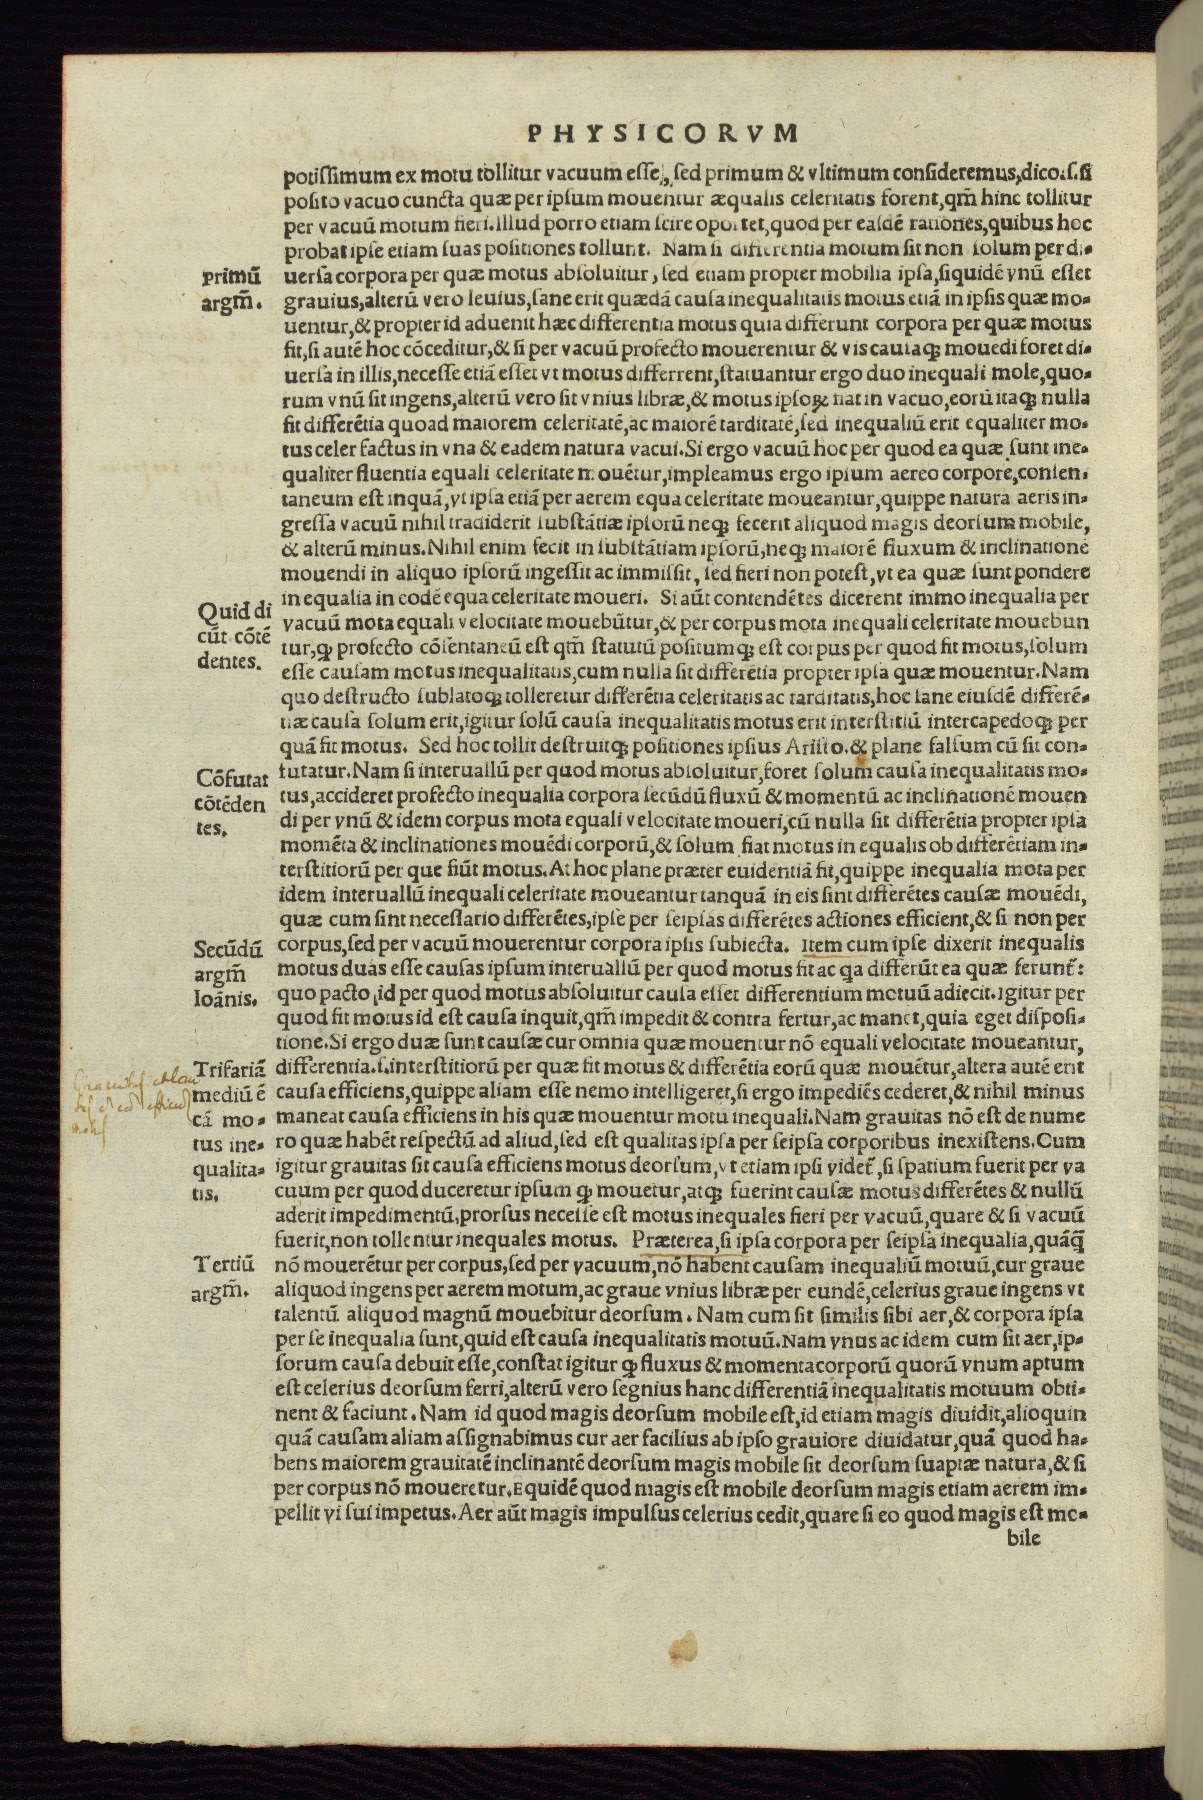 PHYSICORVM
potissimum ex motu tollitur vacuum esse, sed primum & vltimum consideremus, dico .s. si
posito vacuo cuncta quæ per ipsum mouentur æqualis celeritatis forent, qm̃ hinc tollitur
per vacuũ motum fieri. Illud porro etiam scire oportet, quod per easdẽ rationes, quibus hoc
probat ipse etiam suas positiones tollunt. Nam si differentia motum sit non solum per di-
primũ
argm̃.
uersa corpora per quæ motus absoluitur, sed etiam propter mobilia ipsa, siquidẽ vnũ esset
grauius, alterũ vero leuius, sane erit quædã causa inequalitatis motus etiã in ipsis quæ mo-
uentur, & propter id aduenit hæc differentia motus quia differunt corpora per quæ motus
fit, si autẽ hoc cõceditur, & si per vacuũ profecto mouerentur & vis causaqꝫ mouẽdi foret di-
uersa in illis, necesse etiã esset vt motus differrent, statuantur ergo duo inequali mole, quo-
rum vnũ sit ingens, alterũ vero sit vnius libræ, & motus ipsoꝝ fiat in vacuo, eorũ itaqꝫ nulla
fit differẽtia quoad maiorem celeritatẽ, ac maiorẽ tarditatẽ, sed inequaliũ erit equaliter mo-
tus celer factus in vna & eadem natura vacui. Si ergo vacuũ hoc per quod ea quæ sunt ine-
qualiter fluentia equali celeritate mouẽtur, impleamus ergo ipsum aereo corpore, consen-
taneum est inquã, vt ipsa etiã per aerem equa celeritate moueantur, quippe natura aeris in-
gressa vacuũ nihil tradiderit substãtiæ ipsorũ neqꝫ fecerit aliquod magis deorsum mobile,
& alterũ minus. Nihil enim fecit in substãtiam ipsorũ, neqꝫ maiorẽ fluxum & inclinationẽ
mouendi in aliquo ipsorũ ingessit ac immissit, sed fieri non potest, vt ea quæ sunt pondere
inequalia in eodẽ equa celeritate moueri. Si aũt contendẽtes dicerent immo inequalia per
Quid di
cũt cõtẽ
dentes.
vacuũ mota equali velocitate mouebũtur, & per corpus mota inequali celeritate mouebun
tur, qꝫ profecto cõsentaneũ est qm̃ statutũ positumqꝫ est corpus per quod fit motus, solum
esse causam motus inequalitatis, cum nulla sit differẽtia propter ipsa quæ mouentur. Nam
quo destructo sublatoqꝫ tolleretur differẽtia celeritatis ac tarditatis, hoc sane eiusdẽ differẽ-
tiæ causa solum erit, igitur solũ causa inequalitatis motus erit interstitiũ intercapedoqꝫ per
quã fit motus. Sed hoc tollit destruitqꝫ positiones ipsius Aristo. & plane falsum cũ sit con-
Cõfutat
cõtẽden
tes.
tutatur. Nam si interuallũ per quod motus absoluitur, foret solum causa inequalitatis mo-
tus, accideret profecto inequalia corpora secũdũ fluxũ & momentũ ac inclinationẽ mouen
di per vnũ & idem corpus mota equali velocitate moueri, cũ nulla sit differẽtia propter ipsa
momẽta & inclinationes mouẽdi corporũ, & solum fiat motus inequalis ob differẽtiam in-
terstitiorũ per que fiũt motus. At hoc plane præter euidentiã fit, quippe inequalia mota per
idem interuallũ inequali celeritate moueantur tanquã in eis sint differẽtes causæ mouẽdi,
quæ cum sint necessario differẽtes, ipse per seipsas differẽtes actiones efficient, & si non per
Secũdũ
argm̃
Ioãnis.
corpus, sed per vacuũ mouerentur corpora ipsis subiecta. Item cum ipse dixerit inequalis
motus duas esse causas ipsum interuallũ per quod motus fit ac qa differũt ea quæ ferunt̃:
quo pacto, id per quod motus absoluitur causa esset differentium motuũ adiecit. Igitur per
quod fit motus id est causa inquit, qm̃ impedit & contra fertur, ac manet, quia eget disposi-
tione. Si ergo duæ sunt causæ cur omnia quæ mouentur nõ equali velocitate moueantur,
Trifariã
mediũ ẽ
cã mo-
tus ine-
qualita-
tis.
differentia .s. interstitiorũ per quæ fit motus & differẽtia eorũ quæ mouẽtur, altera autẽ erit
causa efficiens, quippe aliam esse nemo intelligeret, si ergo impediẽs cederet, & nihil minus
maneat causa efficiens in his quæ mouentur motu inequali. Nam grauitas nõ est de nume
ro quæ habẽt respectũ ad aliud, sed est qualitas ipsa per seipsa corporibus inexistens. Cum
igitur grauitas sit causa efficiens motus deorsum, vt etiam ipsi videt̃, si spatium fuerit per va
cuum per quod duceretur ipsum qꝫ mouetur, atqꝫ fuerint causæ motus differẽtes & nullũ
aderit impedimentũ, prorsus necesse est motus inequales fieri per vacuũ, quare & si vacuũ
fuerit, non tollentur inequales motus. Præterea, si ipsa corpora per seipsa inequalia, quãqꝫ
Tertiũ
argm̃.
nõ mouerẽtur per corpus, sed per vacuum, nõ habent causam inequaliũ motuũ, cur graue
aliquod ingens per aerem motum, ac graue vnius libræ per eundẽ, celerius graue ingens vt
talentũ aliquod magnũ mouebitur deorsum. Nam cum sit similis sibi aer, & corpora ipsa
per se inequalia sunt, quid est causa inequalitatis motuũ. Nam vnus ac idem cum sit aer, ip-
sorum causa debuit esse, constat igitur qꝫ fluxus & momenta corporũ quorũ vnum aptum
est celerius deorsum ferri, alterũ vero segnius hanc differentiã inequalitatis motuum obti-
nent & faciunt. Nam id quod magis deorsum mobile est, id etiam magis diuidit, alioquin
quã causam aliam assignabimus cur aer facilius ab ipso grauiore diuidatur, quã quod ha-
bens maiorem grauitatẽ inclinantẽ deorsum magis mobile sit deorsum suaptæ natura, & si
per corpus nõ moueretur. Equidẽ quod magis est mobile deorsum magis etiam aerem im-
pellit vi sui impetus. Aer aũt magis impulsus celerius cedit, quare si eo quod magis est mo-
bile